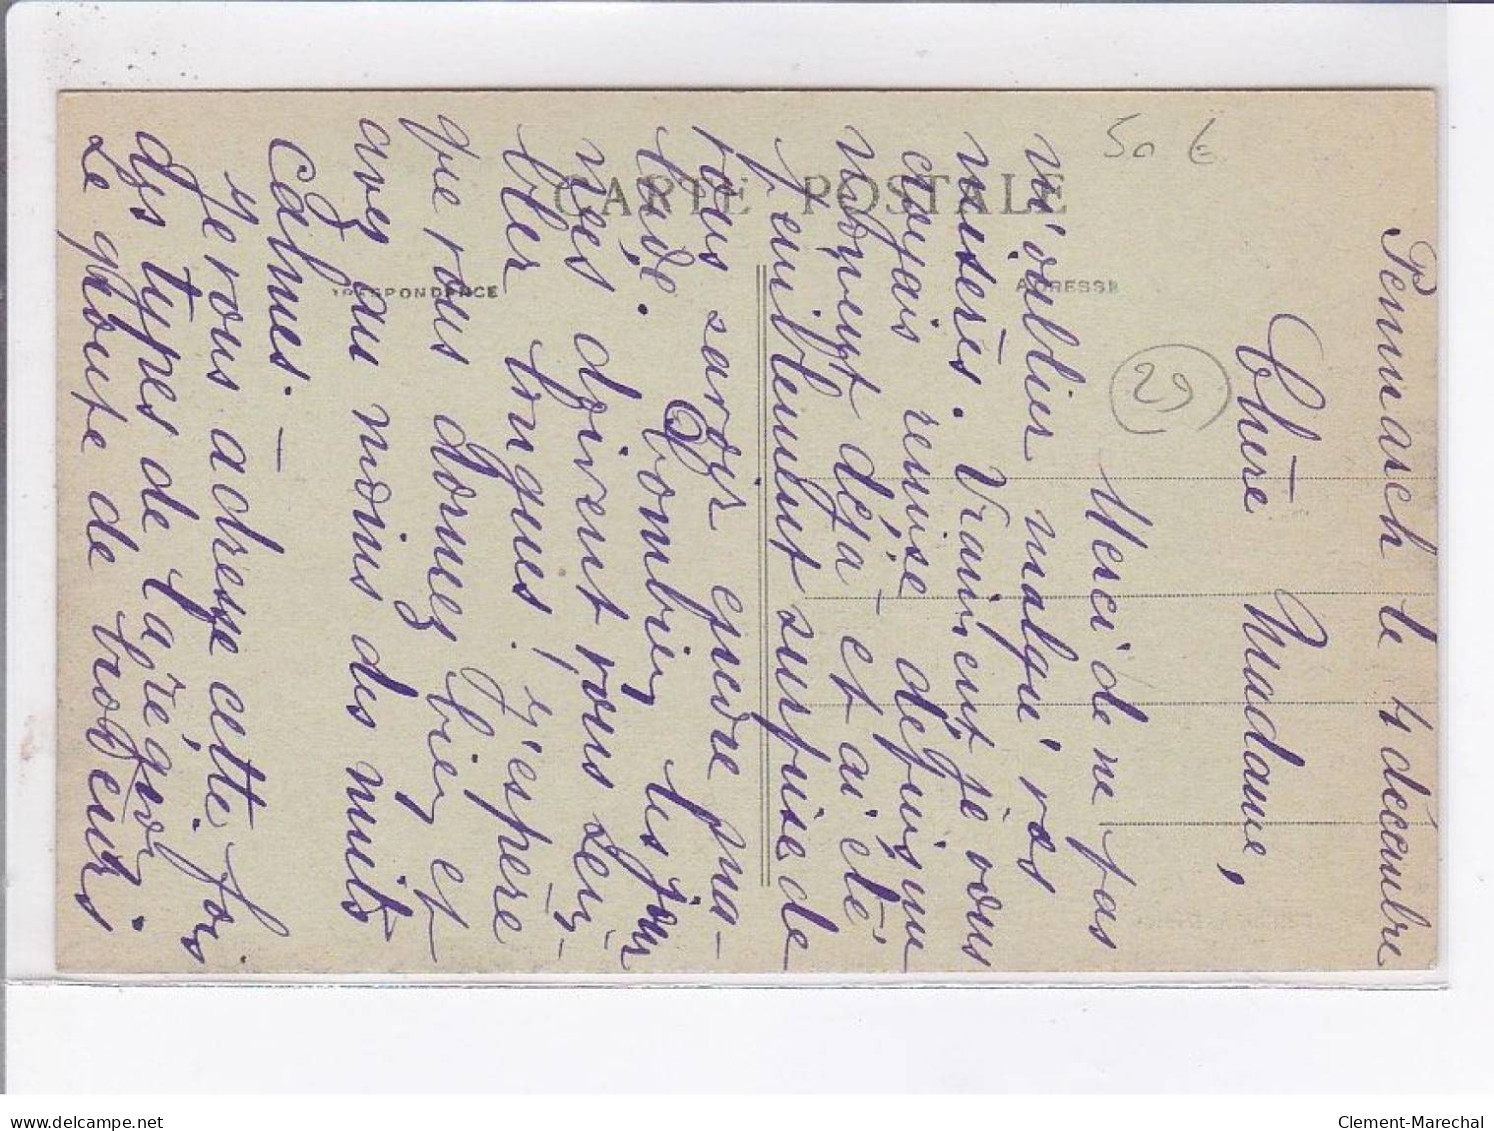 CARTE POSTALE
CORRESPONDENCE
ADRESSE
50 €
29
Penmarch le 4 décembre
Chère Madame,
Merci de ne pas
m'oublier malgré vos
misères. Vraiment je vous
croyais remise depuis un
moment déjà et ai été
péniblement surprise de
vous savoir encore ma-
lade. Combien les jours
vous sem-
bler longues! J'espère
que vous dormez bien et
avez au moins des nuits
calmes. -
Je vous adresse cette fois
dys types de la région.
Le groupe de brodeurs
delcampe.net
Clement-Marechal